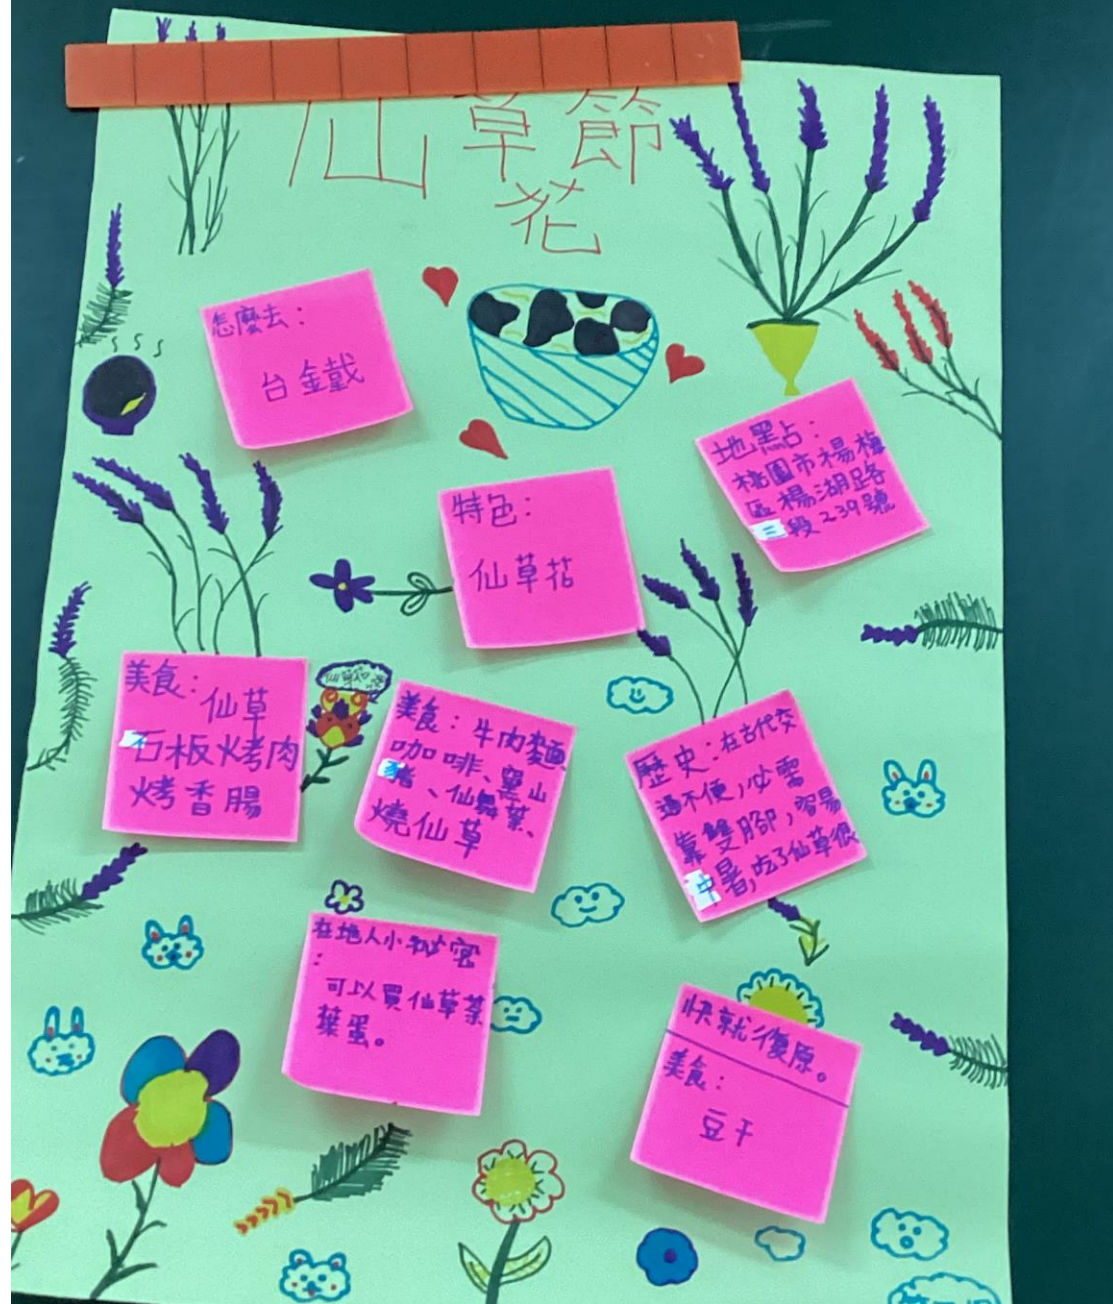 仙草節
花
怎麼去：
台鐵
地點：
桃園市楊梅
區楊湖路
三段239號
特色：
仙草花
美食：仙草
石板烤肉
烤香腸
美食：牛肉麵
咖啡、窯山
豬、仙舞茶、
燒仙草
歷史：在古代交
通不便，必需
靠雙腳，容易
中暑，吃了仙草很
在地人小秘密
：
可以買仙草茶
葉蛋。
快就復原。
美食：
豆干